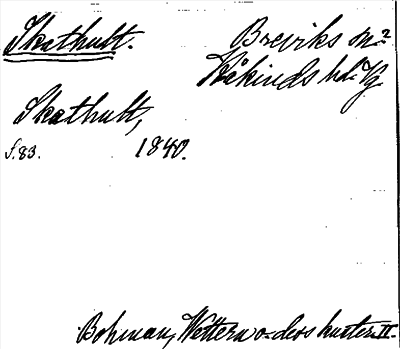 Skathult.
Breviks sn.
Kåkinds hd. Vg
Skathult,
s. 83. 1840.
Bohman, Wettern o. dess kuster. II.